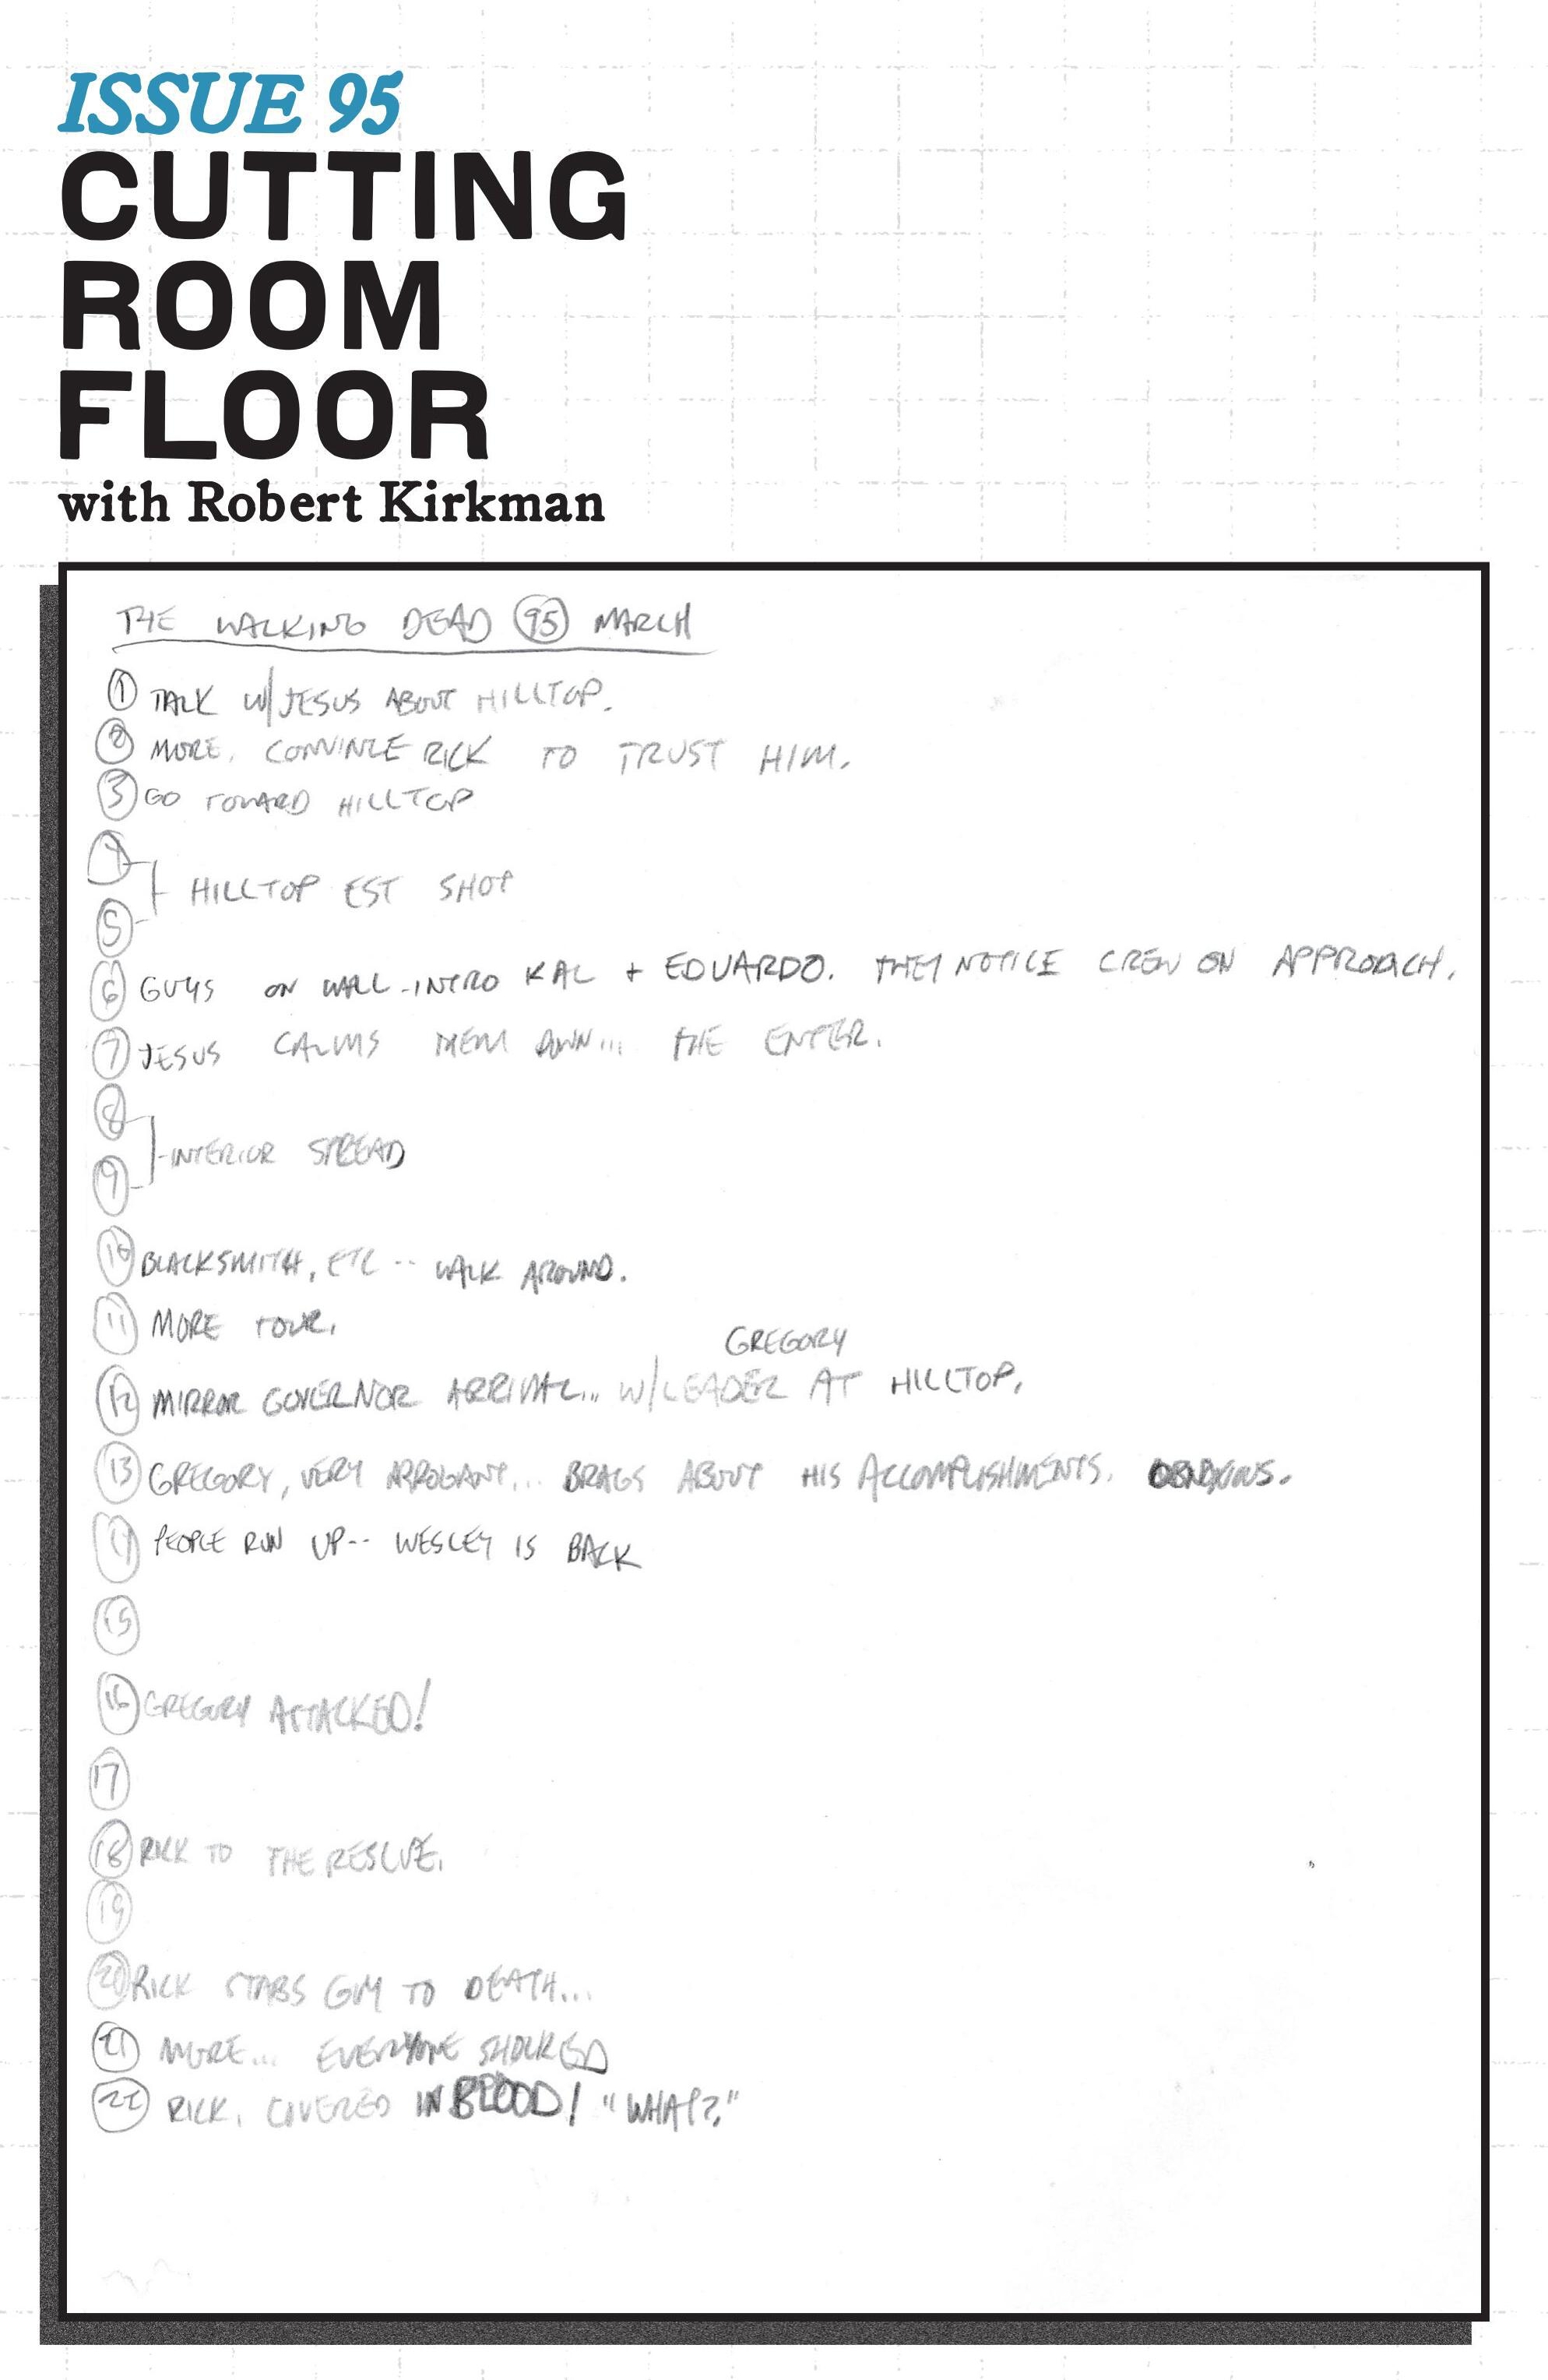 ISSUE 95
CUTTING
ROOM
FLOOR
with Robert Kirkman
THE WALKING DEAD 95 MARCH
1 TALK W/JESUS ABOUT HILLTOP.
2 MORE. CONVINCE RICK TO TRUST HIM.
3 GO TOWARD HILLTOP
4
HILLTOP EST SHOT
5
6 GUYS ON WALL - INTRO KAL + EDUARDO. THEY NOTICE CREW ON APPROACH.
7 JESUS CALMS THEM DOWN... THE ENTER.
8
INTERIOR SPREAD
9
10 BLACKSMITH, ETC -- WALK AROUND.
11 MORE TOUR.
GREGORY
12 MIRROR GOVERNOR ARRIVAL... W/LEADER AT HILLTOP.
13 GREGORY, VERY ARROGANT... BRAGS ABOUT HIS ACCOMPLISHMENTS. OBNOXIOUS.
14 PEOPLE RUN UP-- WESLEY IS BACK
15
16 GREGORY ATTACKED!
17
18 RICK TO THE RESCUE.
19
20 RICK STABS GUY TO DEATH...
21 MORE... EVERYONE SHOCKED
22 RICK, COVERED IN BLOOD! "WHAT?"